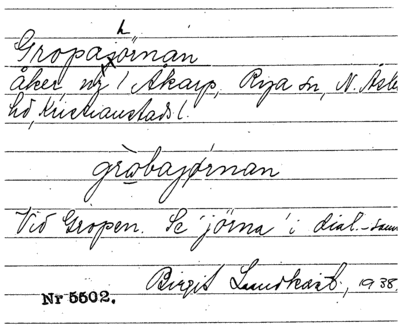 Gropahjörnan
åker nr 1 Åkarp, Rya sn, N. Åsbo
hd, Kristianstads l.
gròbajørnan
Vid Gropen. Se 'jörna' i dial.-saml.
Birgit Lundkvist, 1938.
Nr 5502.